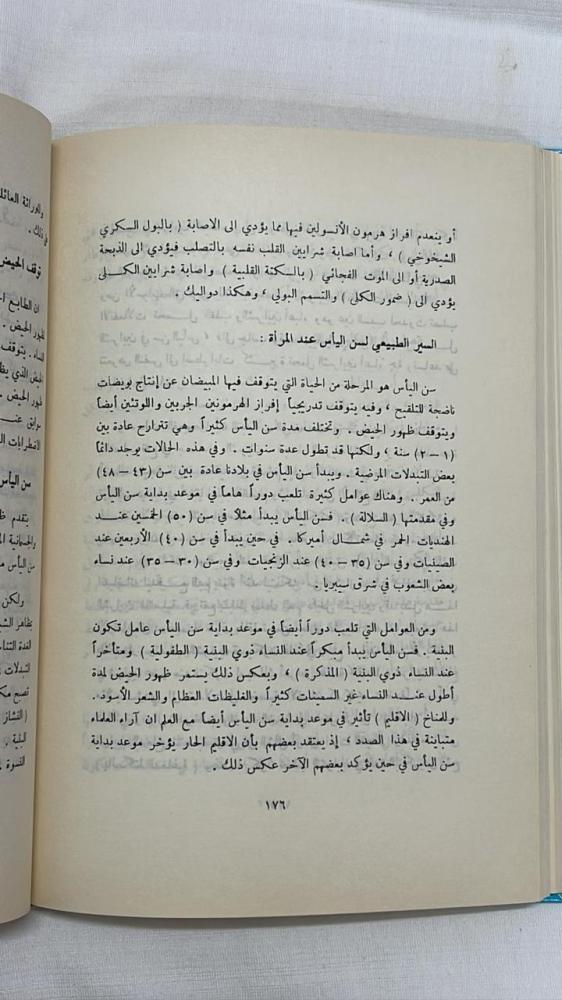 أو ينعدم افراز هرمون الأنسولين فيها مما يؤدي الى الاصابة ( بالبول السكري
الشيخوخي ) ، وأما اصابة شرايين القلب نفسه بالتصلب فيؤدي الى الذبحة
الصدرية أو الى الموت الفجائي ( بالسكتة القلبية ) واصابة شرايين الكلى
يؤدي الى ( ضمور الكلى ) والتسمم البولي ، وهكذا دواليك .
السير الطبيعي لسن اليأس عند المرأة :
سن اليأس هو المرحلة من الحياة التي يتوقف فيها المبيضان عن إنتاج بويضات
ناضجة للتلقيح ، وفيه يتوقف تدريجياً إفراز الهرمونين الجريبي واللوتئين أيضاً
ويتوقف ظهور الحيض . وتختلف مدة سن اليأس كثيراً وهي تتراوح عادة بين
(١ – ٢) سنة ، ولكنها قد تطول عدة سنوات . وفي هذه الحالات يوجد دائماً
بعض التبدلات المرضية . ويبدأ سن اليأس في بلادنا عادة بين سن (٤٣ – ٤٨)
من العمر . وهناك عوامل كثيرة تلعب دوراً هاماً في موعد بداية سن اليأس
وفي مقدمتها ( السلالة ) . فسن اليأس يبدأ مثلاً في سن (٥٠) الخمسين عند
الهنديات الحمر في شمال أميركا . في حين يبدأ في سن (٤٠) الأربعين عند
الصينيات وفي سن (٣٥ – ٤٠) عند الزنجيات وفي سن (٣٠ – ٣٥) عند نساء
بعض الشعوب في شرق سيبريا .
ومن العوامل التي تلعب دوراً أيضاً في موعد بداية سن اليأس عامل تكون
البنية . فسن اليأس يبدأ مبكراً عند النساء ذوي البنية ( الطفولية ) ومتأخراً
عند النساء ذوي البنية ( المذكرة ) ، وبعكس ذلك يستمر ظهور الحيض لمدة
أطول عند النساء غير السمينات كثيراً والغليظات العظام والشعر الأسود .
وللمناخ ( الاقليم ) تأثير في موعد بداية سن اليأس أيضاً مع العلم ان آراء العلماء
متباينة في هذا الصدد ، إذ يعتقد بعضهم بأن الاقليم الحار يؤخر موعد بداية
سن اليأس في حين يؤكد بعضهم الآخر عكس ذلك .
١٧٦